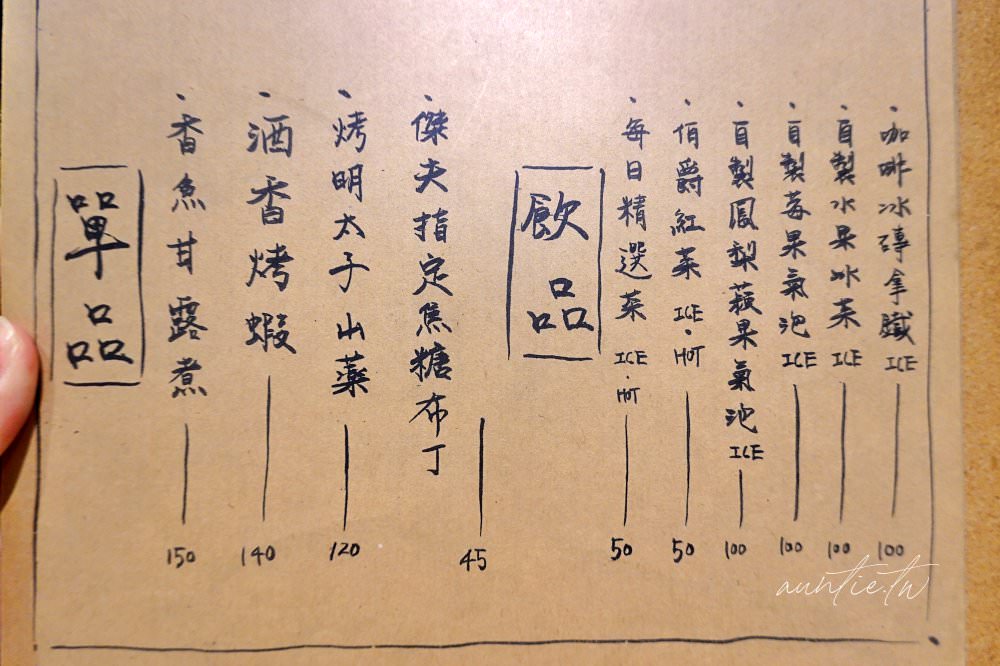 單品
· 香魚甘露煮 150
· 酒香烤蝦 140
· 烤明太子山藥 120
· 傑夫指定焦糖布丁 45
飲品
· 每日精選茶 ICE·HOT 50
· 伯爵紅茶 ICE·HOT 50
· 自製鳳梨蘋果氣泡 ICE 100
· 自製莓果氣泡 ICE 100
· 自製水果冰茶 ICE 100
· 咖啡冰磚拿鐵 ICE 100
auntie.tw